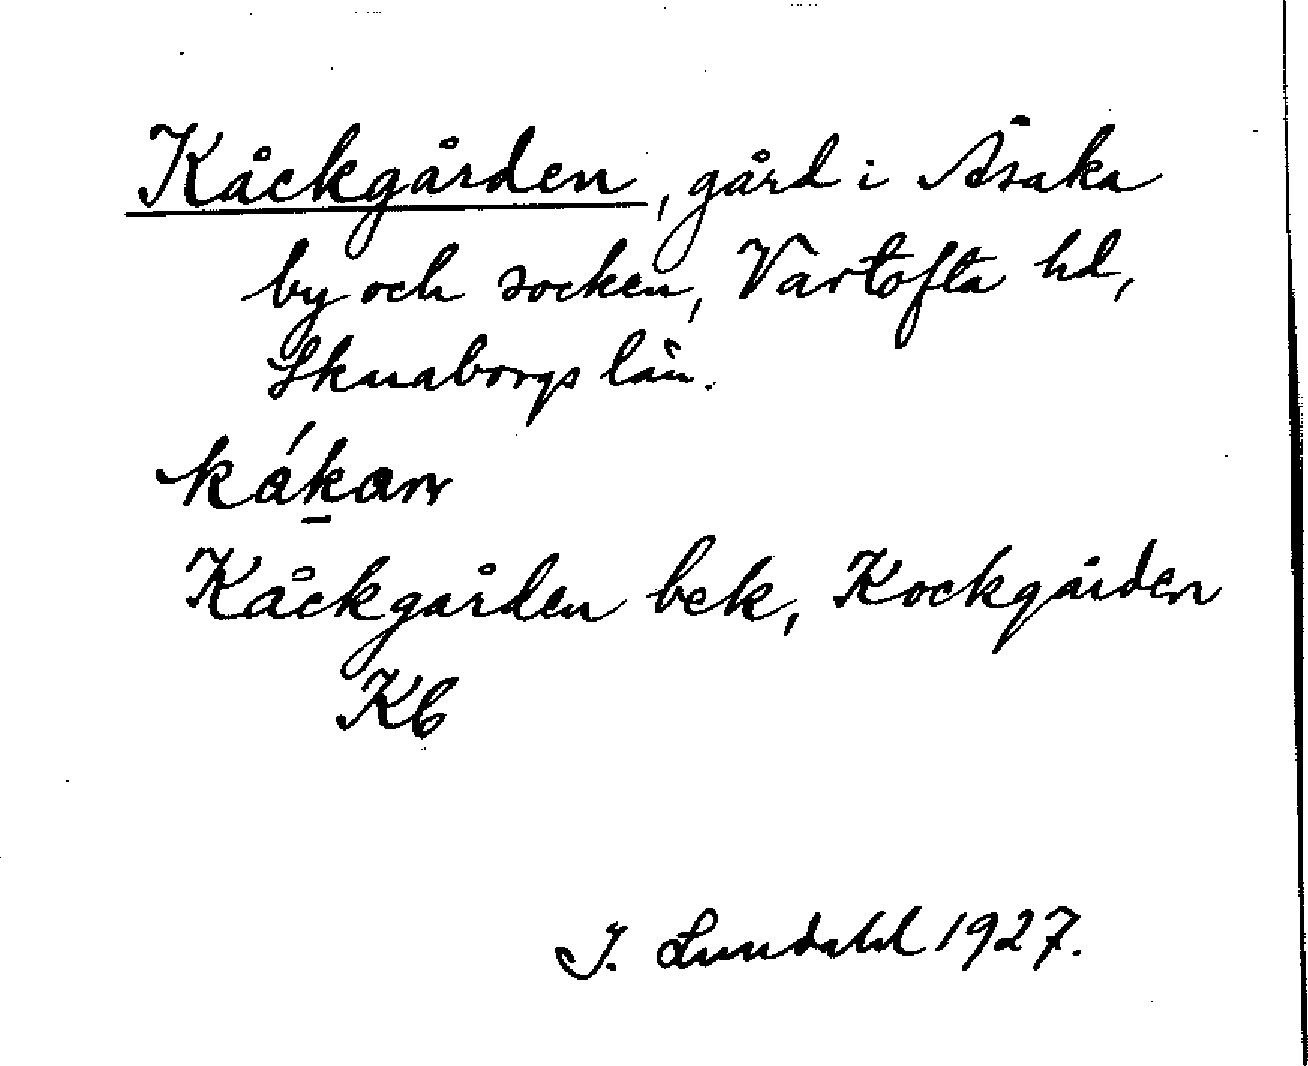 Kåckgården, gård i Åsaka
by och socken, Vartofta hd,
Skaraborgs län.
kákan
Kåckgården bek, Kockgården
Kb
I. Lundahl 1927.